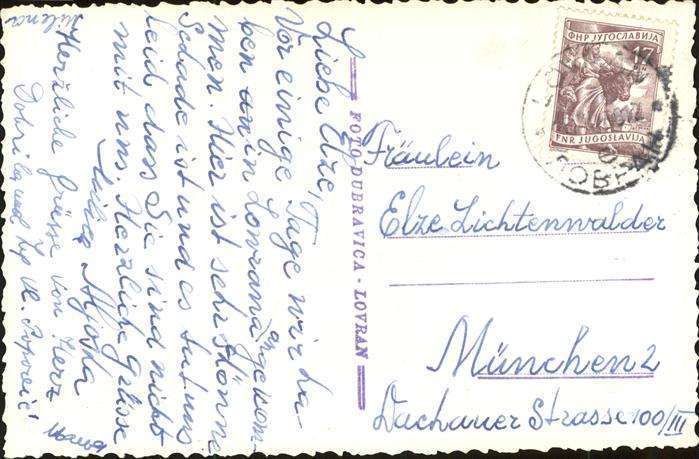 Liebe Elze,
Vor einige Tage wir ha-
ben an in Lovrana angekom-
men. Hier ist sehr shönne
Schade ist und es tut uns
leid dass Sie sind nicht
mit uns. Herzliche Grüsse
Aljoška
Herzliche Grüsse von Herz
Dobrila und
Milena
FOTO DUBRAVICA - LOVRAN
ФНР ЈУГОСЛАВИЈА
17
FNR JUGOSLAVIJA
Fräulein
Elze Lichtenwalder
München 2
Dachauer Strasse 100/III